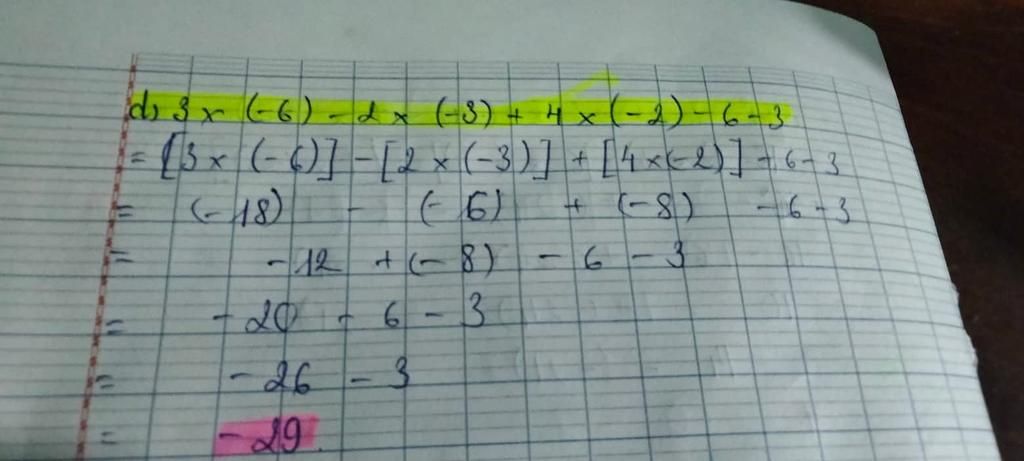 d) 3 × (-6) - 2 × (-3) + 4 × (-2) - 6 - 3
= [3 × (-6)] - [2 × (-3)] + [4 × (-2)] - 6 - 3
= (-18) - (-6) + (-8) - 6 - 3
= -12 + (-8) - 6 - 3
= -20 - 6 - 3
= -26 - 3
= -29.